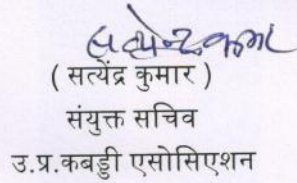 सत्येन्द्र कुमार
( सत्येंद्र कुमार )
संयुक्त सचिव
उ.प्र.कबड्डी एसोसिएशन